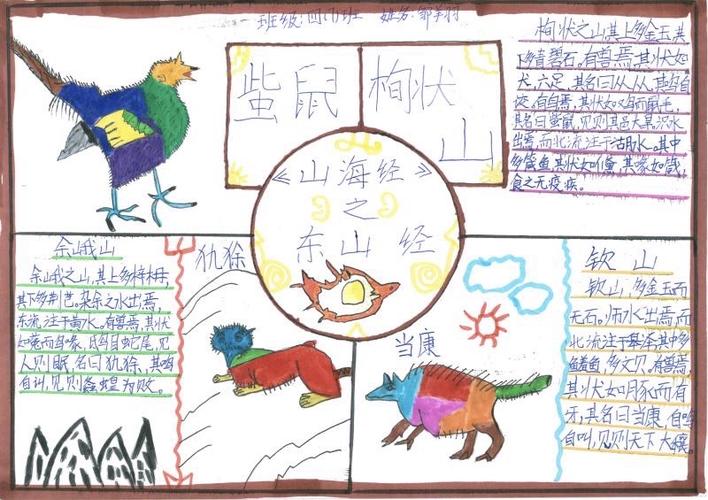 班级:四(1)班 姓名:邹羊羽
蚩鼠
栒状
山
栒状之山,其上多金玉,其
下多青碧石。有兽焉,其状如
犬,六足,其名曰从从,其鸣自
詨。有鸟焉,其状如鸡而鼠毛,
其名曰蚩鼠,见则其邑大旱。沢水
出焉,而北流注于湖水。其中
多箴鱼,其状如鯈,其喙如箴,
食之无疫疾。
《山海经》
之
东山经
余峨山
余峨之山,其上多梓楠,
其下多荆芑。杂余之水出焉,
东流注于黄水。有兽焉,其状
如菟而鸟喙,鸱目蛇尾,见
人则眠,名曰犰狳,其鸣
自叫,见则螽蝗为败。
犰狳
当康
钦山
钦山,多金玉而
无石。师水出焉,而
北流注于皋泽,其中多
鱃鱼,多文贝。有兽焉,
其状如豚而有
牙,其名曰当康,自鸣
自叫,见则天下大穰。